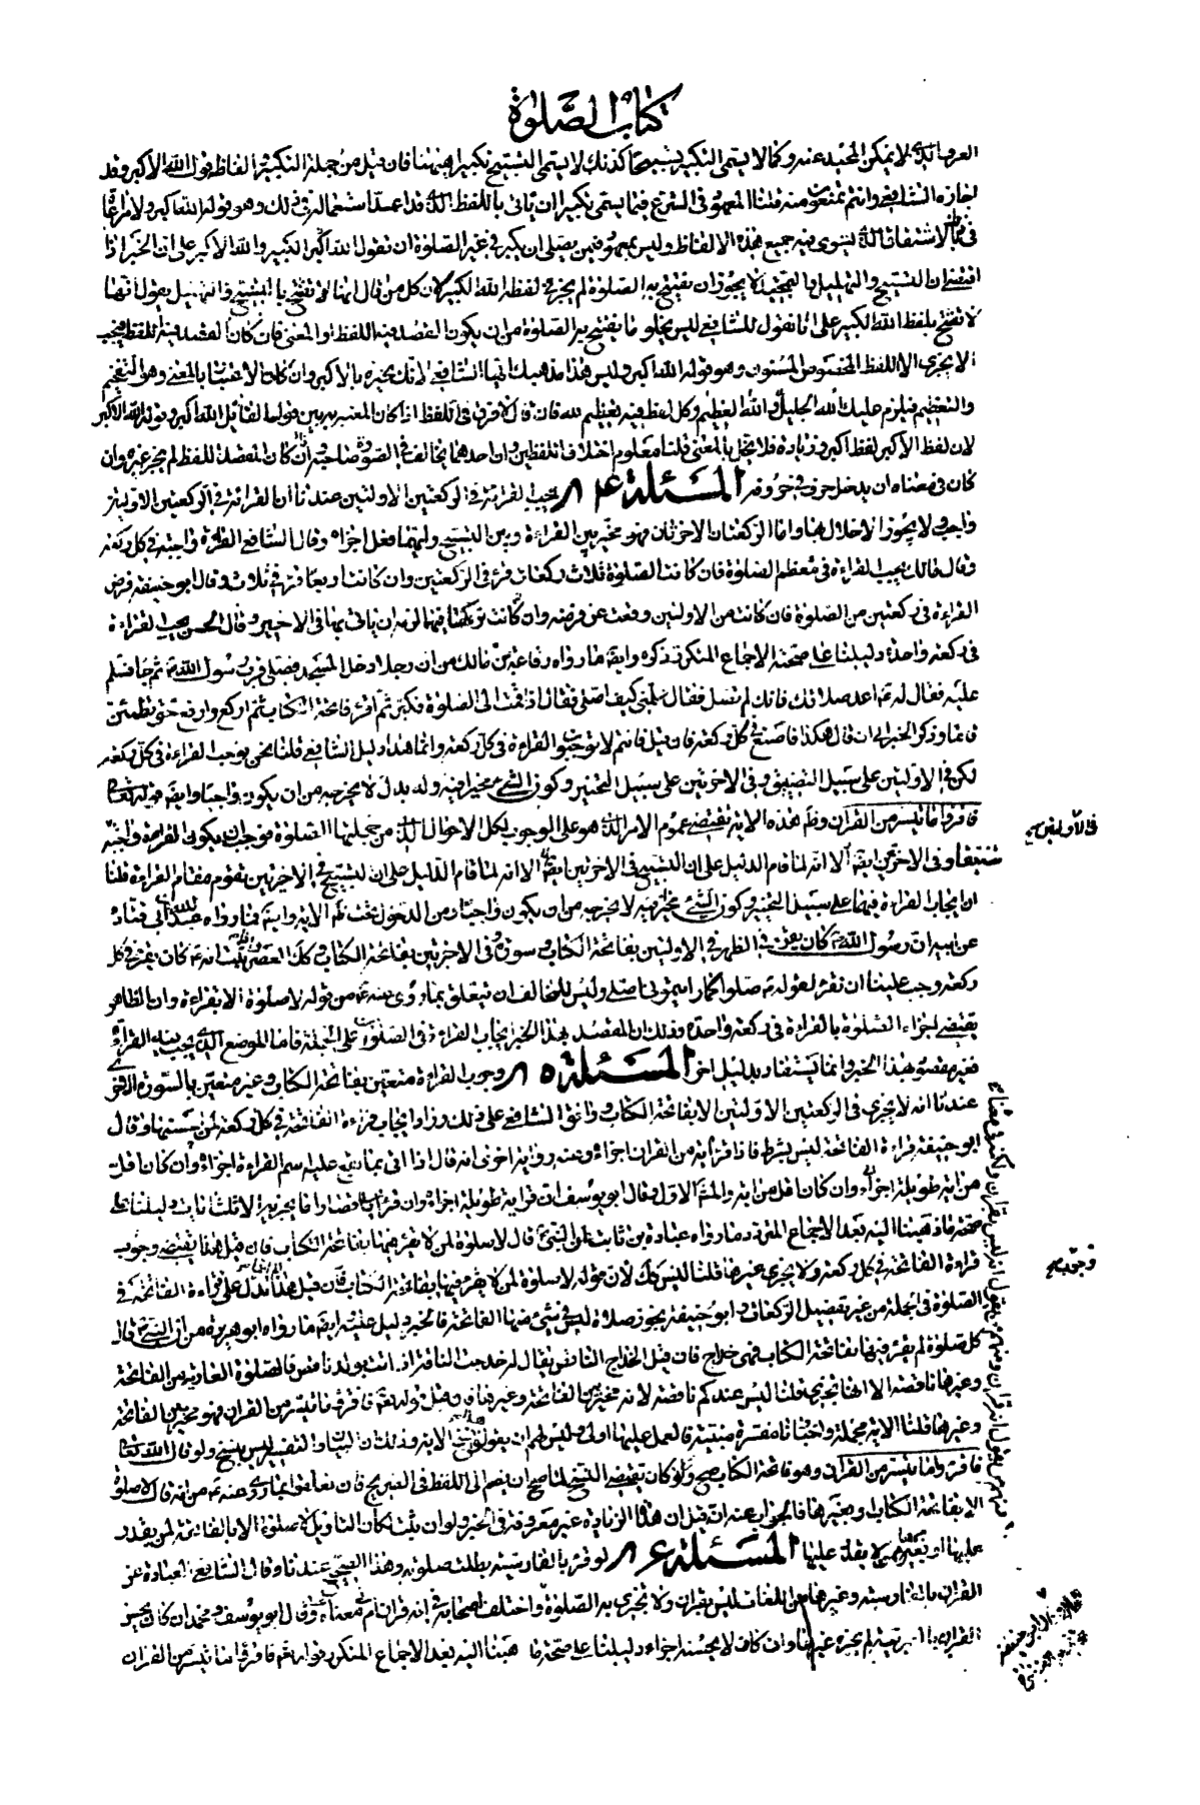 كتاب الصلوة
العرب الذي لا يمكن المحيد عنه وكما لا يسمى التكبير تسبيحا كذلك لا يسمى التسبيح تكبيرا هيهنا فان قيل من جملة التكبير والفاظه قول الله الاكبر وقد
اجازه الشافعي وانتم تمنعون منه قلنا المعهود في الشرع فيما يسمى تكبيرا ان يأتي باللفظ الذي قد اعتيد استعماله في ذلك وهو قوله الله اكبر ولا يراعى
في هذا الاشتقاق الذي يستوي فيه جميع هذه الالفاظ وليس بمعهود فيمن يصلي ان يكبر في غير الصلوة ان يقول الله اكبر الكبير والله الاكبر على ان الخبر اذا
اقتضى ان التسبيح والتهليل والتحميد لا يجوز ان يفتتح به الصلوة لم يجز في لفظة الله الكبير لان كل من قال انها لا تفتتح بالتسبيح والتهليل يقول انها
لا تفتتح بلفظ الله الكبير على انا نقول للشافعي ليس يخلو ما يفتتح به الصلوة من ان يكون القصد فيه اللفظ او المعنى فان كان القصد فيه اللفظ فيجب
الا يجزي الا اللفظ المخصوص المسنون وهو قوله الله اكبر وليس هذا مذهبك ايها الشافعي لانك تجيزه بالاكبر وان كان الاعتبار بالمعنى وهو التفخيم
والتعظيم فيلزم عليك الله الجليل والله العظيم وكل لفظ فيه تعظيم لله فان قال لا فرق في تلفظ اذا كان المعتبر به بين قول القائل الله اكبر وقوله الله الاكبر
لان لفظ الاكبر لفظ اكبر وزيادة فلا يخل بالمعنى قلنا معلوم اختلاف اللفظين وان احدهما يخالف في الصورة صاحبه وان كان القصد اللفظ لم يجز غيره وان
كان في معناه ان يدخل حرف في حروفه المسئلة ٨٤ يجب القراءة في الركعتين الاولتين عندنا ان القراءة في الركعتين الاولتين
واجب ولا يجوز الاخلال بها واما الركعتان الاخرتان فهو مخير بين القراءة وبين التسبيح وايهما فعل اجزاه وقال الشافعي القراءة واجبة في كل ركعة
وقال مالك يجب القراءة في معظم الصلوة فان كانت الصلوة ثلاث ركعات قرء في الركعتين وان كانت اربعا قرء في ثلاث وقال ابو حنيفة فرض
القراءة في ركعتين من الصلوة فان كانت من الاولتين وقعت عن فرضه وان كانت تركها فيهما لزمه ان يأتي بها في الاخيرين وقال الحسن يجب القراءة
في ركعة واحدة دليلنا على صحته الاجماع المتكرر ذكره وايضا ما رواه رفاعة بن مالك من ان رجلا دخل المسجد فصلى قرب رسول الله ثم جاء فسلم
عليه فقال له اعد صلاتك فانك لم تصل فقال علمني كيف اصلي فقال اذا قمت الى الصلوة فكبر ثم اقرء فاتحة الكتاب ثم اركع وارفع حتى تطمئن
قائما وذكر الخبر الى ان قال هكذا فاصنع في كل ركعة فان قيل فانتم لا توجبون القراءة في كل ركعة وانما هذا دليل الشافعي قلنا نحن نوجب القراءة في كل ركعة
لكن في الاولتين على سبيل التضييق وفي الاخرتين على سبيل التخيير وكون الشيء مخيرا فيه وله بدل لا يخرجه من ان يكون واجبا وايضا قوله تعالى
فاقرؤا ما تيسر من القرآن وظاهر هذه الاية تقتضي عموم الامر الذي هو على الوجوب لكل الاحوال التي من جملتها الصلوة فوجب ان يكون القراءة واجبة
في الاولتين صح
تضيقا وفي الاخرتين ايضا الا انه لما قام الدليل على ان التسبيح في الاخرتين تقوم مقام القراءة قلنا
ان ايجاب القراءة فيهما على سبيل التخيير وكون الشيء مخيرا فيه لا يخرجه من ان يكون واجبا ومن الدخول تحت ظاهر الاية وايضا فما رواه عبد الله بن ابي قتادة
عن ابيه ان رسول الله كان يقرء في الظهر في الاولتين بفاتحة الكتاب وسورة وفي الاخرتين بفاتحة الكتاب وكذلك العصر واذا ثبت انه كان يقرء في كل
ركعة وجب علينا ان نقرء لقوله صلوا كما رأيتموني اصلي وليس للمخالف ان يتعلق بما روى عنه من قوله لا صلوة الا بقراءة وان الظاهر
يقتضي اجزاء الصلوة بالقراءة في ركعة واحدة وذلك ان القصد بهذا الخبر ايجاب القراءة في الصلوات على الجملة فاما الموضع الذي يجب فيه القراءة
فغير مقصود بهذا الخبر وانما يستفاد بدليل اخر المسئلة ٨٥ وجوب القراءة متعين بفاتحة الكتاب وغير متعين بالسورة الاخرى
عندنا انه لا يجزي في الركعتين الاولتين الا بفاتحة الكتاب ووافق الشافعي على ذلك وزاد ايجاب قراءة الفاتحة في كل ركعة لمن يحسنها وقال
ابو حنيفة قراءة الفاتحة ليس بشرط فاذا قرأ اية من القرآن اجزأه وعنه رواية اخرى انه قال اذا اتى بما يقع عليه اسم القراءة اجزأه وان كان اقل
من اية طويلة اجزأه وان كان اقل من اية والمشهور الاول وقال ابو يوسف ان قرأ اية طويلة اجزأه وان قرأ ايات قصار لم يجز به الا ثلاث ايات دليلنا على
صحة ما ذهبنا اليه بعد الاجماع المقدم ما رواه عبادة بن ثابت عن النبي قال لا صلوة لمن لا يقرء فيها بفاتحة الكتاب فان قيل هذا يقتضي وجوب
قراءة الفاتحة في كل ركعة ولا يجزي غيرها قلنا ليس كذلك لان قوله لا صلوة لمن لا يقرء فيها بفاتحة الكتاب
الصلوة في الجملة من غير تفصيل الركعات وابو حنيفة يجوز صلاة ليس في شيء منها الفاتحة فالخبر دليل عليه ايضا ما رواه ابو هريرة من ان النبي قال
كل صلوة لم يقرء فيها بفاتحة الكتاب فهي خداج فان قيل الخداج الناقص يقال اخدجت الناقة اذا اتت بولد ناقص فالصلوة العارية من الفاتحة
وغيرها ناقصة الا انها تجزي قلنا ليس عندكم ناقصة لانه مخير بين الفاتحة وغيرها فان قيل قوله تعالى فاقرؤا ما تيسر من القرآن فهو مخير بين الفاتحة
وغيرها قلنا الاية مجملة واخبارنا مفسرة مبينة فالعمل عليها اولى وليس لهم ان يقولوا نسخ الاية وذلك ان البيان والتفسير ليس بنسخ ولو قال الله تعالى
فاقرؤا ما تيسر من القرآن وهو فاتحة الكتاب صح ولو كان يقتضي النسخ لما صح ان ينضم الى اللفظ في الصريح فان تعلقوا بما روى عنه من انه قال لا صلوة
الا بفاتحة الكتاب او بغيرها فالجواب عنه ان قيل ان هذه الزيادة غير معروفة في الخبر ولو ان ثبت لكان التأويل لا صلوة الا بالفاتحة لمن يقدر
عليها او بغيرها لمن لا يقدر عليها المسئلة ٨٦ لو قرء بالفارسية بطلت صلوته وهذا الصحيح عندنا وقال الشافعي العبارة عن
القرآن بالفارسية وغيرها من اللغات ليس بقرآن ولا يجزي به الصلوة واختلف اصحابه في انه قرآن ام في معناه وقال ابو يوسف ومحمد ان كان يحسن
القرآن بالعربية لم يجزه غيرها وان كان لا يحسنه اجزاه دليلنا على صحة ما ذهبنا اليه بعد الاجماع المتكرر قوله تعالى فاقرؤا ما تيسر من القرآن